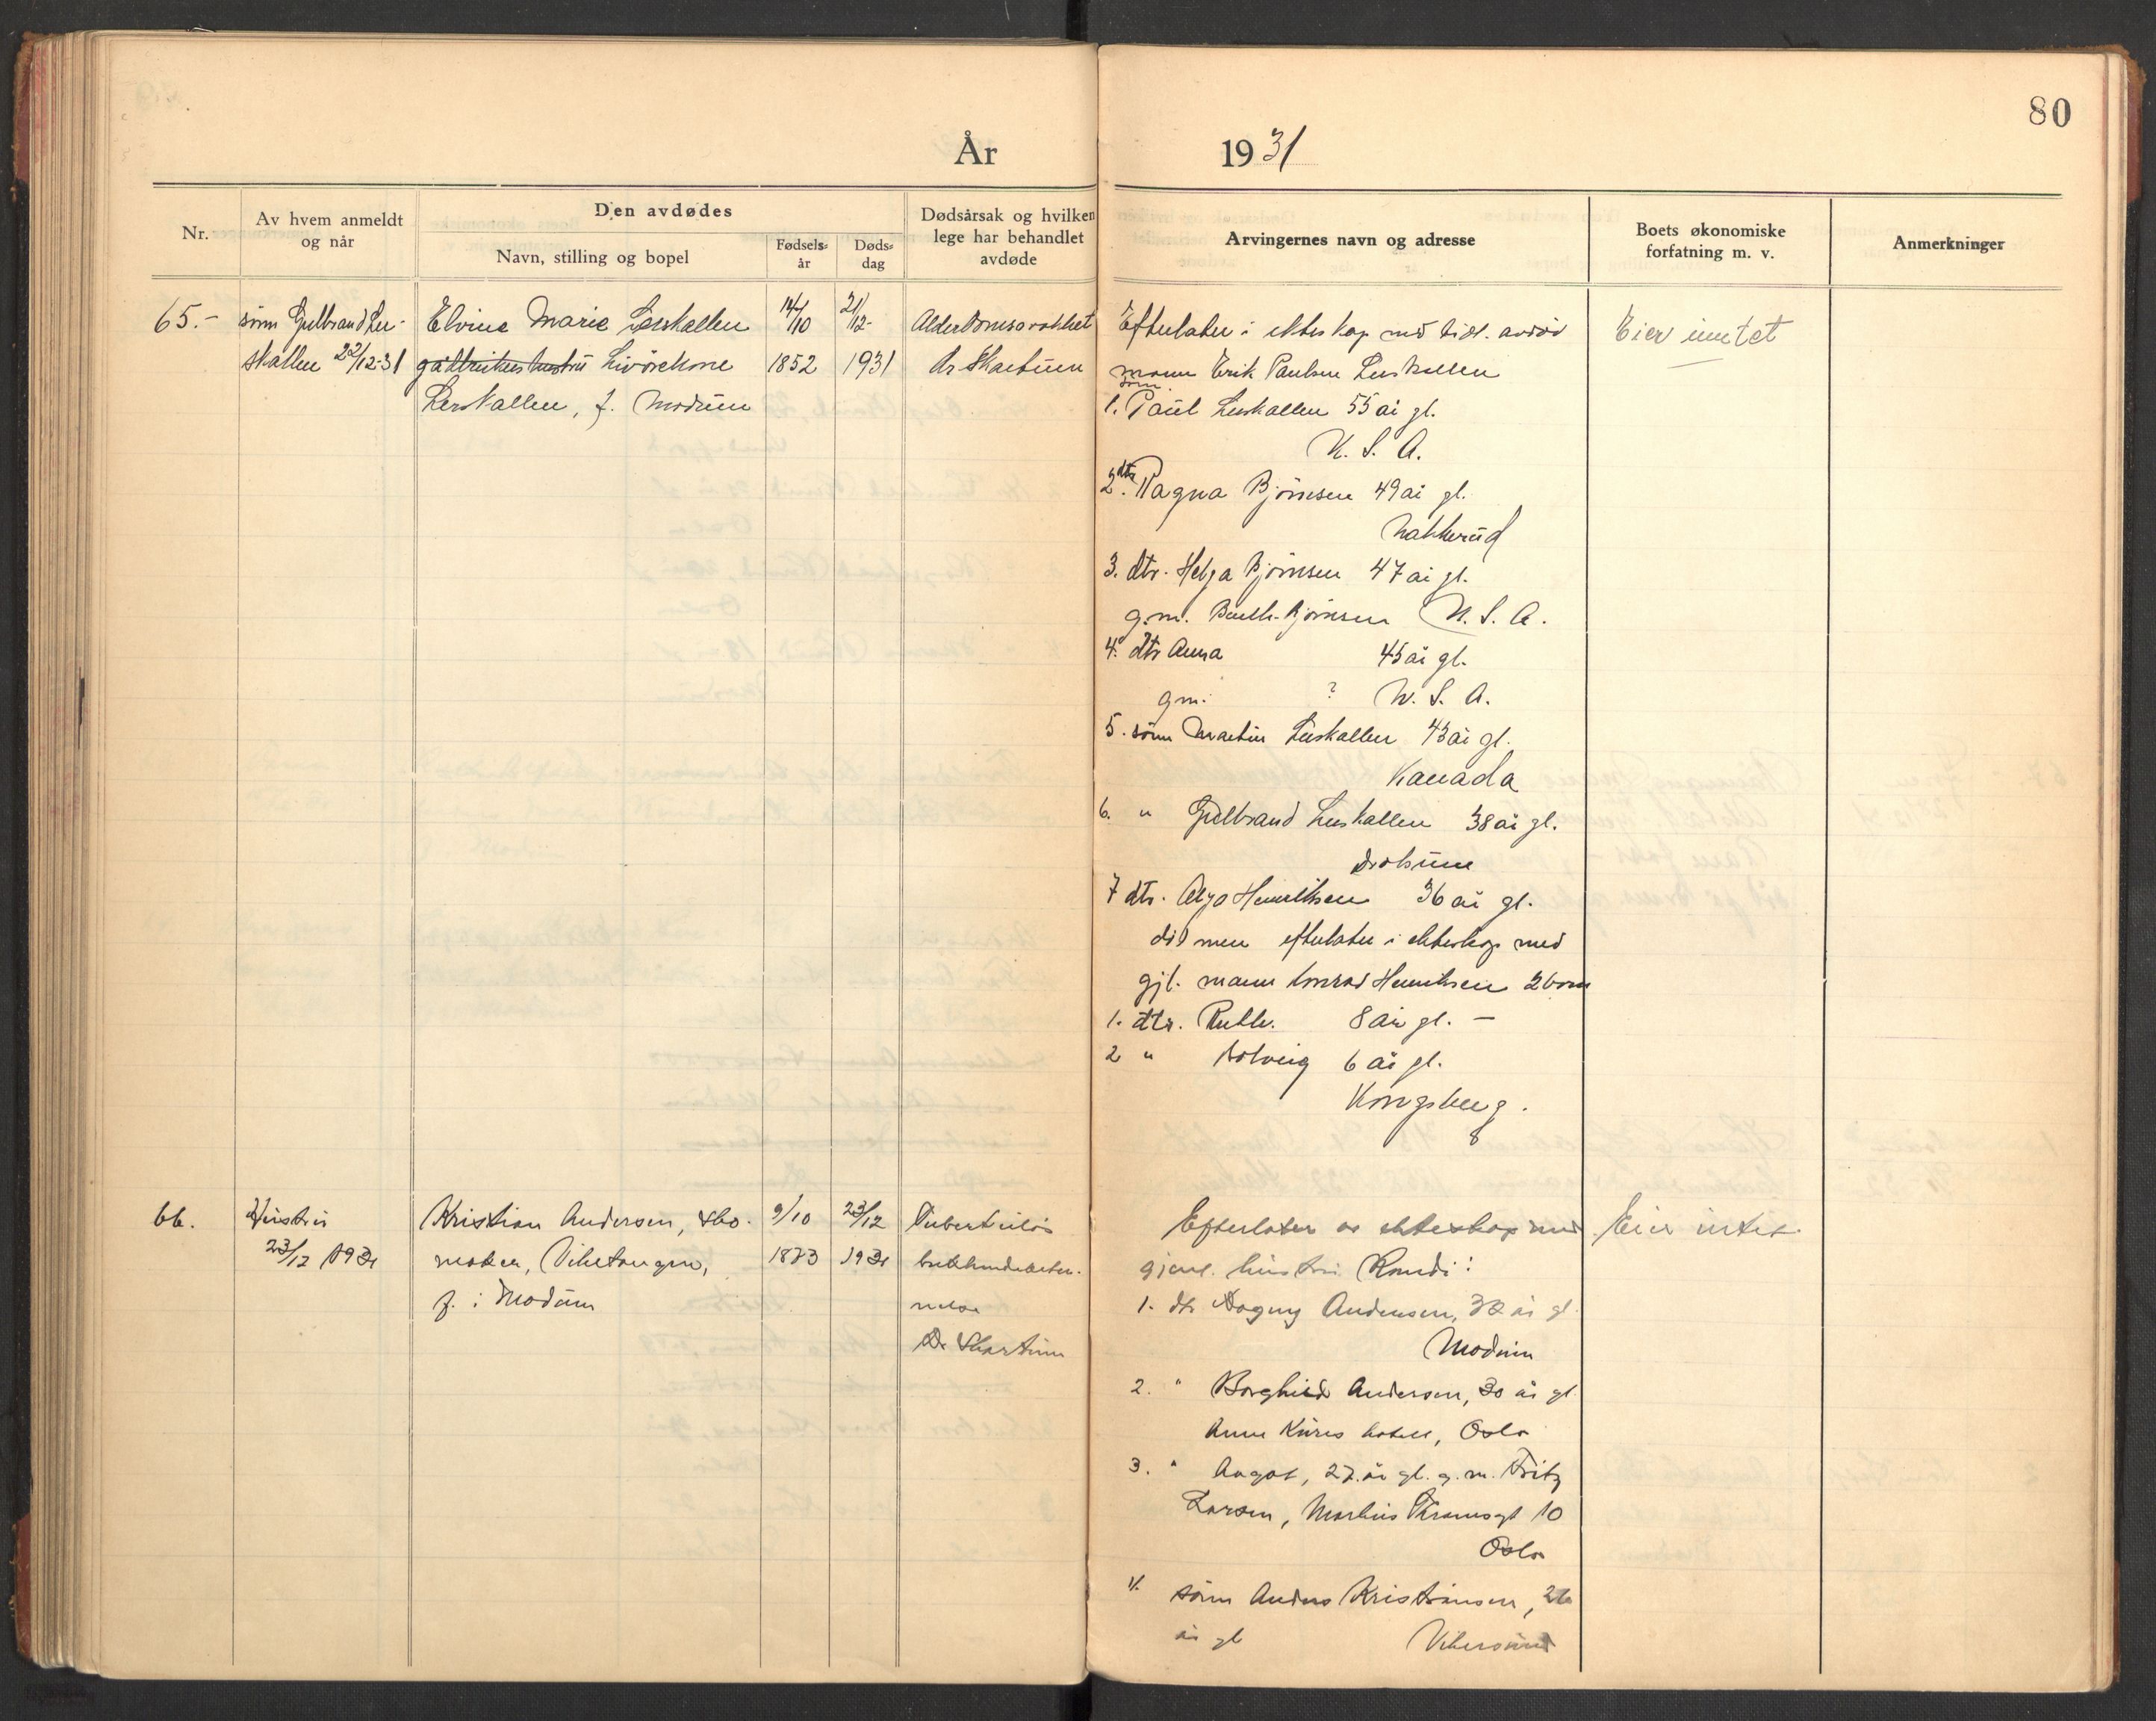 80
År 1931
Nr.
Av hvem anmeldt og når
Den avdødes
Navn, stilling og bopel
Fødselsår
Dødsdag
Dødsårsak og hvilken lege har behandlet avdøde
Arvingernes navn og adresse
Boets økonomiske forfatning m. v.
Anmerkninger
65.-
sønn Gulbrand Ler-
skallen 22/12-31
Elvine Marie Lerskallen
gårdbrukerhustru Livørekone
Lerskallen, f. Modum
14/10
1852
21/12-
1931
Alderdomssvakhet
dr Skartum
Efterlater i ekteskap med tidl. avdød
mann Erik Paulsen Lerskallen
1. sønn Paul Lerskallen 55 år gl.
U. S. A.
2. dtr Ragna Bjørnsen 49 år gl.
Nakkerud
3. dtr. Helga Bjørnsen 47 år gl.
g.m. Bjørnsen U. S. A.
4. dtr Anna 45 år gl.
gm. ? U. S. A.
5. sønn Martin Lerskallen 43 år gl.
Kanada
6. " Gulbrand Lerskallen 38 år gl.
7 dtr. Henriksen 36 år gl.
død men efterlater i ekteskap med
gjl. mann Konrad Henriksen 2 barn
1. dtr. Ruth. 8 år gl. -
2 " Solveig 6 år gl.
Kongsberg.
Eier intet
66.
Hustru
23/12 1931
Kristian Andersen, sko-
maker, Viketangen,
f. i Modum
9/10
1873
23/12
1931
Tuberkuløs
Dr Skartum
Efterlater av ekteskap med
gjenl. hustru Randi:
1. dtr Dagny Andersen, 32 år gl.
Modum
2. " Borghild Andersen, 30 år gl.
Anne Kures hotell, Oslo
3. " Aagot, 27 år gl. g. m. Fritz
Larsen, Markus Thranesgt 10
Oslo
4. sønn Anders Kristiansen, 26
år gl Vikersund
Eier intet.